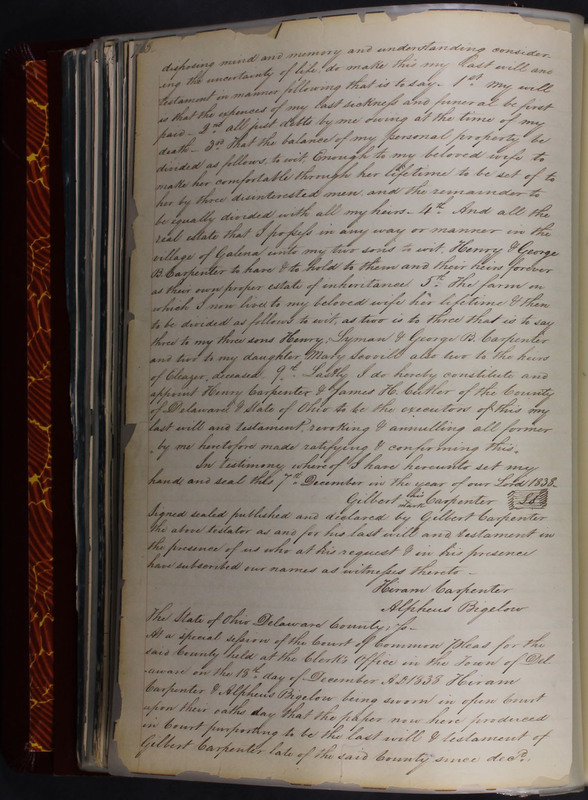 disposing mind and memory and understanding consider-
ing the uncertainty of life, do make this my last will and
testament in manner following that is to say - 1st My will
is that the expences of my last sickness and funeral be first
paid - 2nd all just debts by me owing at the time of my
death - 3rd That the balance of my personal property be
divided as follows, to wit, Enough to my beloved wife to
make her comfortable through her lifetime to be set of to
her by three disinterested men and the remainder to
be equally divided with all my heirs - 4th And all the
real estate that I posess in any way or manner in the
village of Galena unto my two sons to wit, Henry & George
B. Carpenter to have & to hold to them and their heirs forever
as their own proper estate of inheritance 5th The farm on
which I now live to my beloved wife her lifetime & then
to be divided as follows to wit, as two is to three that is to say
three to my three sons Henry, Lyman & George B. Carpenter
and two to my daughter Mary Scovill also two to the heirs
of Eleazer, deceased. 9th Lastly I do hereby constitute and
appoint Henry Carpenter & James H. Cutler of the County
of Delaware & State of Ohio to be the executors of this my
last will and testament, revoking & annulling all former
by me heretofore made ratifying & conforming this.
In testimony whereof I have hereunto set my
hand and seal this 7th December in the year of our Lord 1838.
Gilbert his mark Carpenter
Signed sealed published and declared by Gilbert Carpenter
the above testator as and for his last will and testament in
the presence of us who at his request & in his presence
have subscribed our names as witnesses thereto -
Hiram Carpenter
Alpheus Bigelow
The State of Ohio Delaware County, Ss -
At a special session of the Court of Common Pleas for the
said County held at the Clerk's Office in the Town of Del-
aware on the 18th day of December AD 1838 Hiram
Carpenter & Alpheus Bigelow being sworn in open Court
upon their oaths say that the paper now here produced
in Court purporting to be the last will & testament of
Gilbert Carpenter late of the said County since decd.